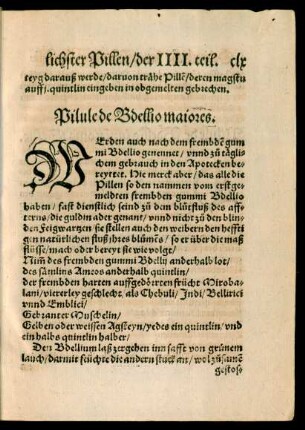 lichster Pillen/der IIII. teil. clx
teyg darauß werde/daruon trähe Pillē/deren magstu
auff j. quintlin eingeben in obgemelten gebrechen.
Pilule de Bdellio maiores.
WErden auch nach dem frembdē gum
mi Bdellio genennet/ vnnd zů täglis
chem gebrauch in den Apotecken be-
reytet. Hie mercke aber/das alle die
Pillen so den nammen vom erstge-
meldten frembden gummi Bdellio
haben/ fast dienstlich seind zů dem blůtfluß des aff-
terns/die guldin ader genant/ vnnd nicht zů den blin-
den Feigwartzen sie stellen auch den weibern den heffti
gen natürlichen fluß jhres blůmēs/ so er über die maß
fliüsse/mach oder bereyt sie wie volgt/
Nim̄ des frembden gummi Bdellij anderhalb lot/
des samlins Ameos anderhalb quintlin/
der frembden harten auffgedörrten frücht Miroba-
lani/viererley geschlecht/als Chebuli/ Indi/ Bellirici
vnnd Emblici/
Gebranter Muschelin/
Gelben oder weissen Agsteyn/yedes ein quintlin/ vnd
ein halbs quintlin halber/
Den Bdellium laß zergehen inn safft von grünem
lauch/darmit feüchte die andern stuck an/ wol zůsamē
gestoso